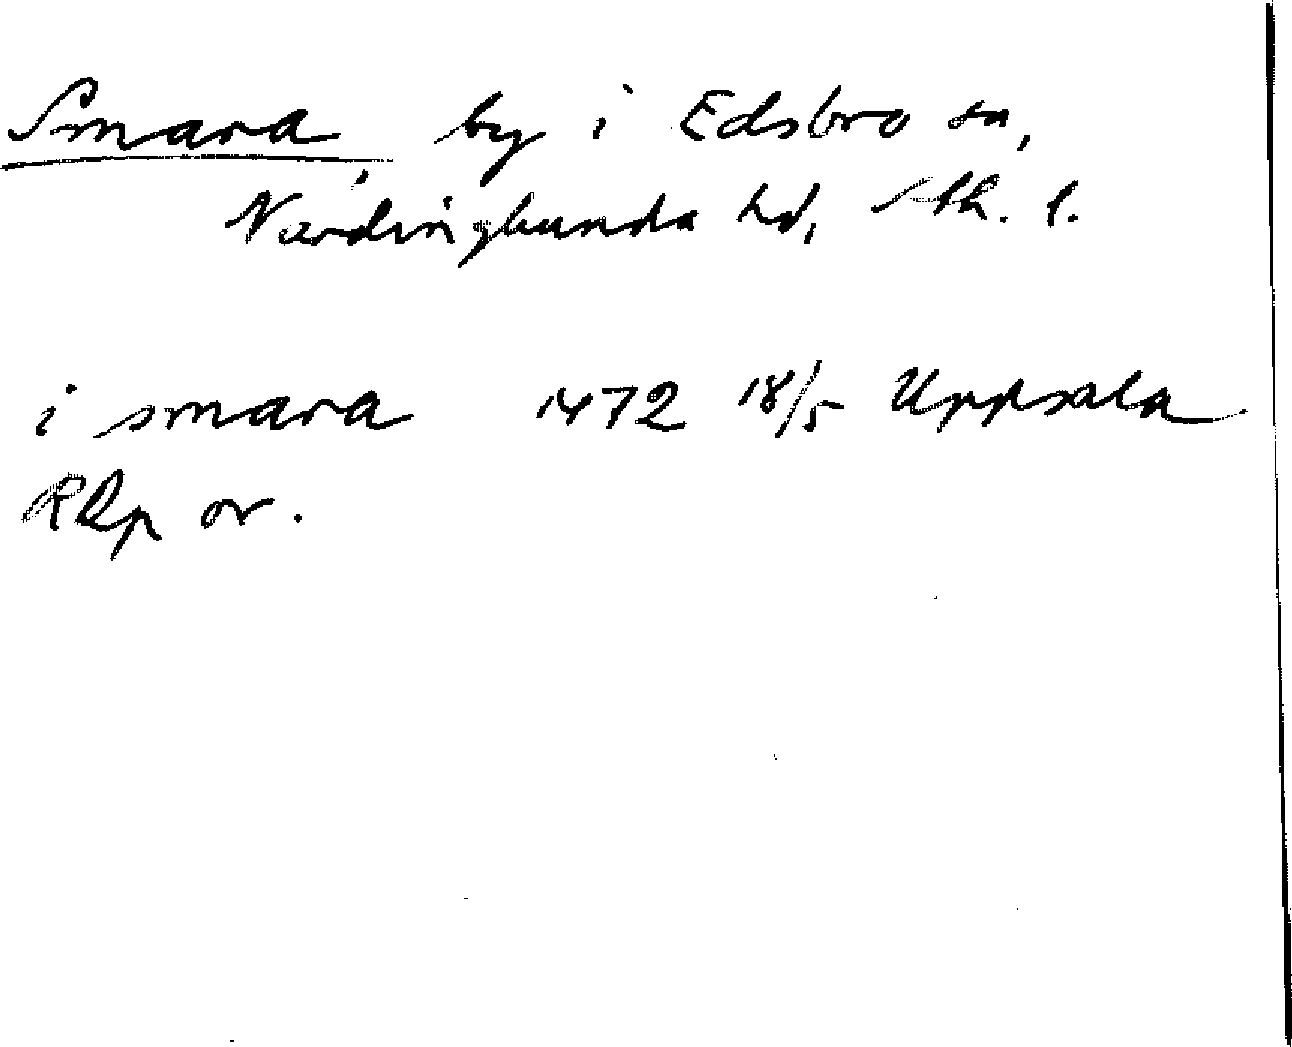 Smara, by i Edsbro sn,
Närdinghundra hd, Sth. l.
i smara 1472 18/5 Uppsala
RAp or.